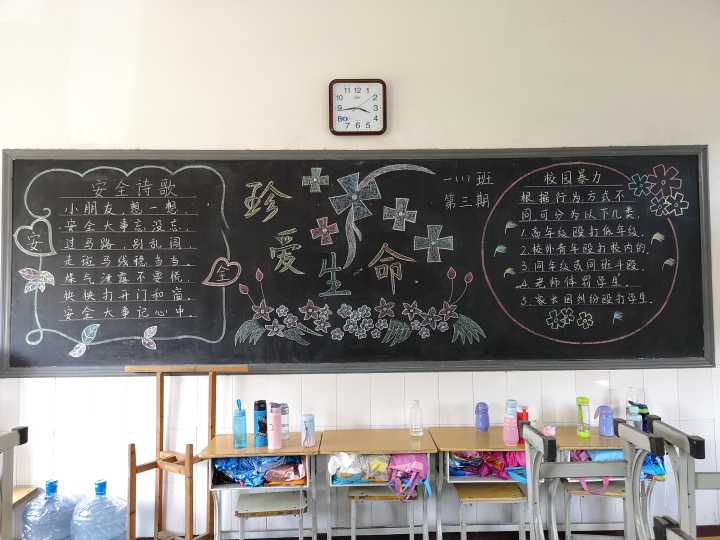 安全诗歌
小朋友,想一想,
安全大事忘没忘,
过马路,别乱闯,
走斑马线稳当当,
煤气泄露不要慌,
快快打开门和窗,
安全大事记心中.
安
全
珍爱生命
一(1)班
第三期
校园暴力
根据行为方式不
同可分为以下几类.
1.高年级殴打低年级.
2.校外青年殴打校内的.
3.同年级或同班斗殴.
4.老师体罚学生.
5.家长因纠纷殴打学生.
12
1
2
3
4
5
6
7
8
9
10
11